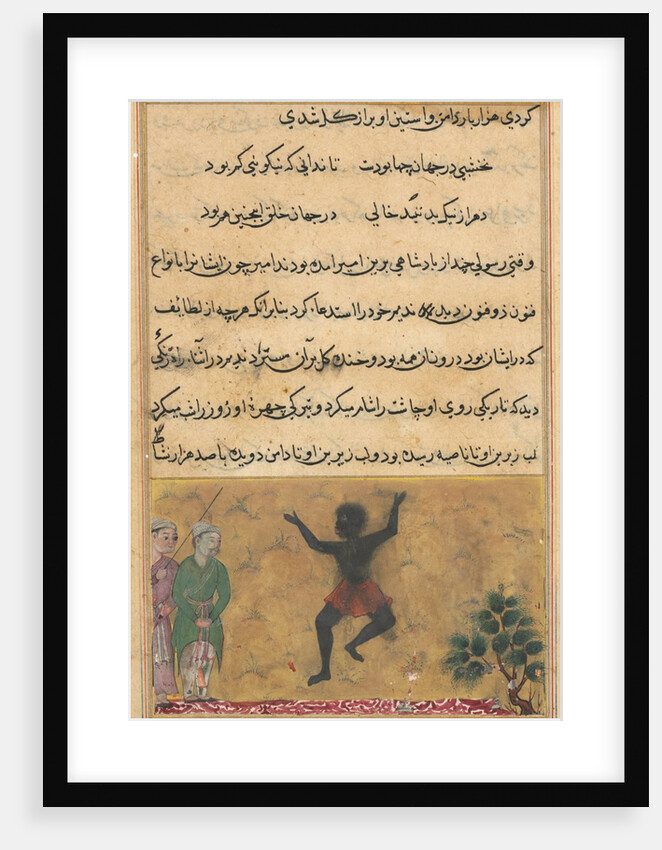 کردي هزار بار دامن و آستین او براز کل شدي
نخشبي در جهان چها بودت تا ندانی که نیکو نبی کر بود
دهر از نیک بد خالي در جهان خلق همچنین هم بود
وقتي رسولي چند از بادشاهي برین امیر آمده بودند امیر چون ایشانرا بانواع
فنون ذو فنون دید ندیم خود را استدعا کرد بنابرانکه هرچه از لطایف
که در ایشان بود در و نان همه بود و خنده کل بران ندیم در اثناء راه زنکي
دید که تاریکي روي او چاشت را شام میکرد و تیرکي چهره او روز را شب میکرد
لب زبرین او تا ناصیه رسیده بود و لب زیرین او تا دامن دویده با صد هزار نشاط